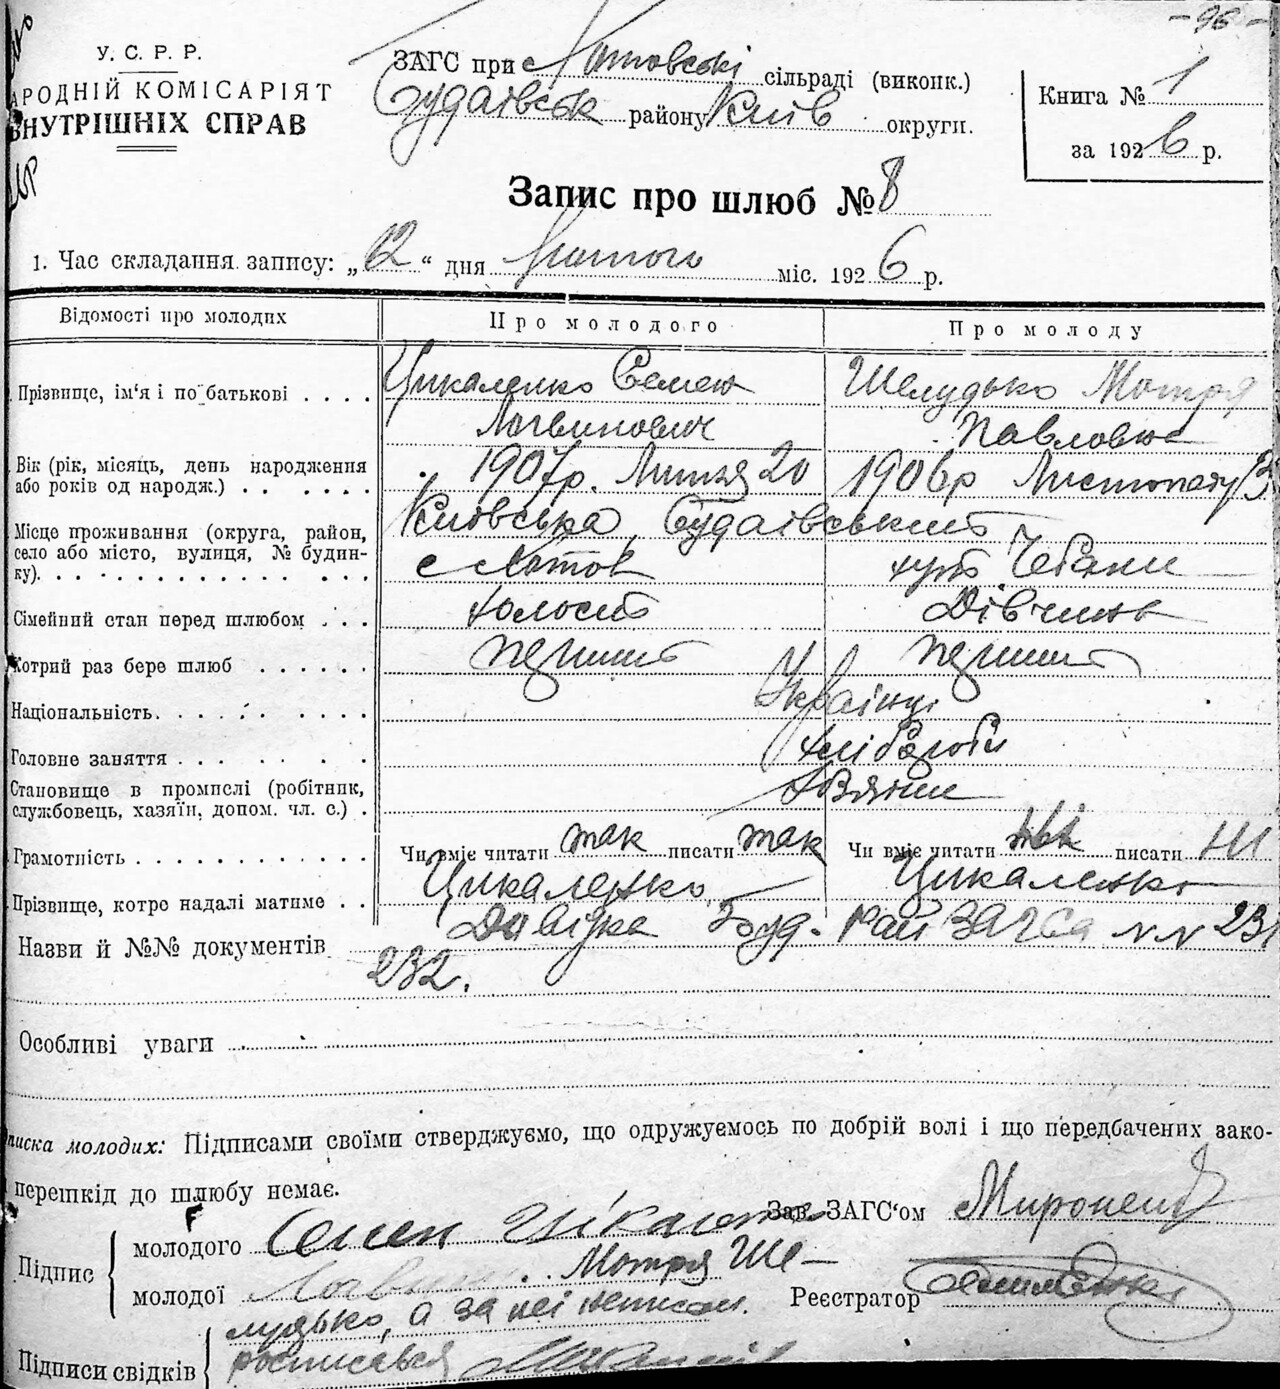 - 96 -
У. С. Р. Р.
АРОДНІЙ КОМІСАРІЯТ
ВНУТРІШНІХ СПРАВ
ЗАГС при Хотовські сільраді (виконк.)
Будаївськ району Київ округи.
Книга № 1
за 1926 р.
Запис про шлюб № 8
1. Час складання запису: „12“ дня Лютого міс. 1926 р.
Відомості про молодих Про молодого Про молоду
Прізвище, ім‘я і по батькові . . . . Цикаленко Семен Шелудько Мотря
Логвинович Павловна
Вік (рік, місяць, день народження 1907р. Липня 20 1906р Листопаду 3
або років од народж.) . . . . . .
Місце проживання (округа, район, Київська, Будаївський
село або місто, вулиця, № будин- с Хотов хут. Чебани
ку). . . . . . . . . . . . . . . .
Сімейний стан перед шлюбом . . . холостий Дівчина
Котрий раз бере шлюб . . . . . . перший перший
Національність. . . . . . . . . . Українці
Головне заняття . . . . . . . хлібороби
Становище в промислі (робітник,
службовець, хазяїн, допом. чл. с.) .
Грамотність . . . . . . . . . . . . . Чи вміє читати так писати так Чи вміє читати писати ні
Прізвище, котро надалі матиме . . Цикаленко Цикаленко
Назви й №№ документів Довідка Буд. Рай ЗАГСа №№ 231
232.
Особливі уваги
писка молодих: Підписами своїми стверджуємо, що одружуемось по добрій волі і що передбачених зако-
перешкід до шлюбу немає.
Зав. ЗАГС‘ом
Підпис
молодого Семен Цікаленко
молодої Мотря Ше-
Реєстратор
лудько, а за неї неписьм.
Підписи свідків росписався